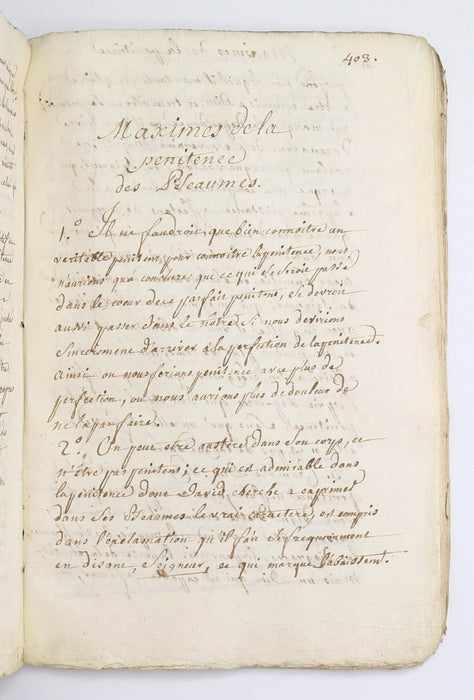 408.
Maximes de la
penitence
des Pseaumes.
1.° Il ne faudroit que bien connoitre un
veritable penitent pour connoitre la penitence, nous
n'aurions qu'a conclure que ce qui se seroit passé
dans le coeur de ce parfait penitent, se devroit
aussi passer dans le notre, si nous desirions
sincerement d'arriver a la perfection de la penitence.
ainsi ou nous ferions penitence avec plus de
perfection, ou nous aurions plus de douleur de
ne la pas faire.
2.° On peut etre austere dans son corps, et
n'être pas penitent; ce qui est admirable dans
la penitence dont David cherche a exprimer
dans ses Pseaumes le vrai caractere, est compris
dans l'exclamation qu'il fait si frequemment
en disant, Seigneur, ce qui marque l'abaissem.t